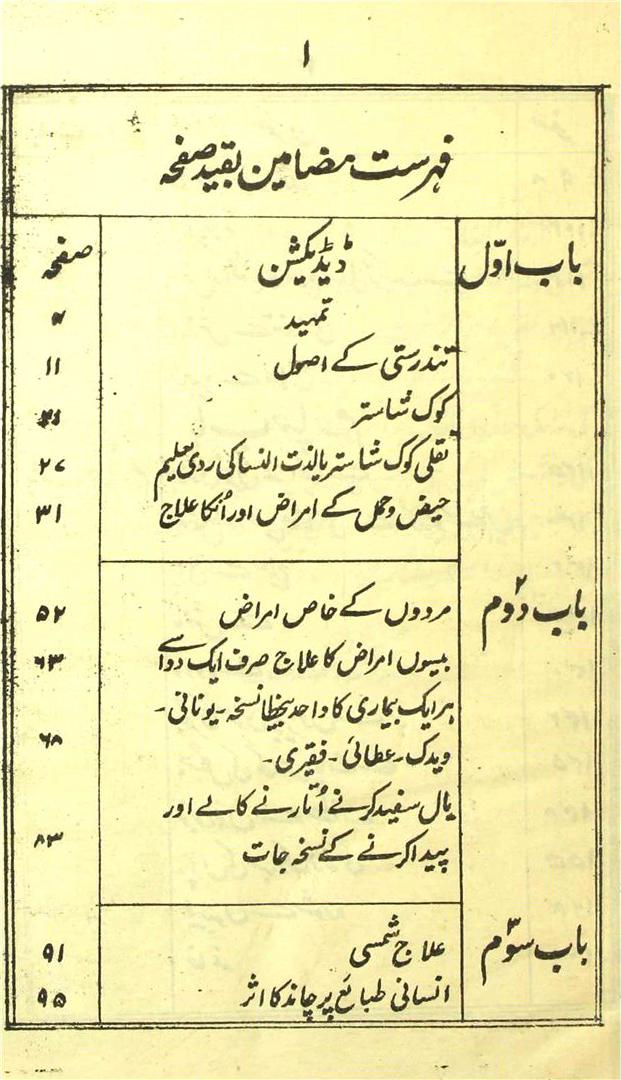 ۱
فہرست مضامین بقید صفحہ
باب اوّل ڈیڈیکیشن صفحہ
تمہید
تندرستی کے اصول ۱۱
کوک شاستر
نقلی کوک شاستر یا لذت النسا کی ردی تعلیم ۲۷
حیض و حمل کے امراض اور اُنکا علاج ۳۱
باب دوم مردوں کے خاص امراض ۵۲
بیسوں امراض کا علاج صرف ایک دوا سے ۶۳
ہر ایک بیماری کا واحد بیخطا نسخہ ۔ یونانی ۔
ویدک ۔ عطائی ۔ فقیری ۔ ۶۸
بال سفید کرنے اُتارنے کالے اور
پیدا کرنے کے نسخہ جات ۸۳
باب سوّم علاج شمسی ۹۱
انسانی طبائع پر چاند کا اثر ۹۵